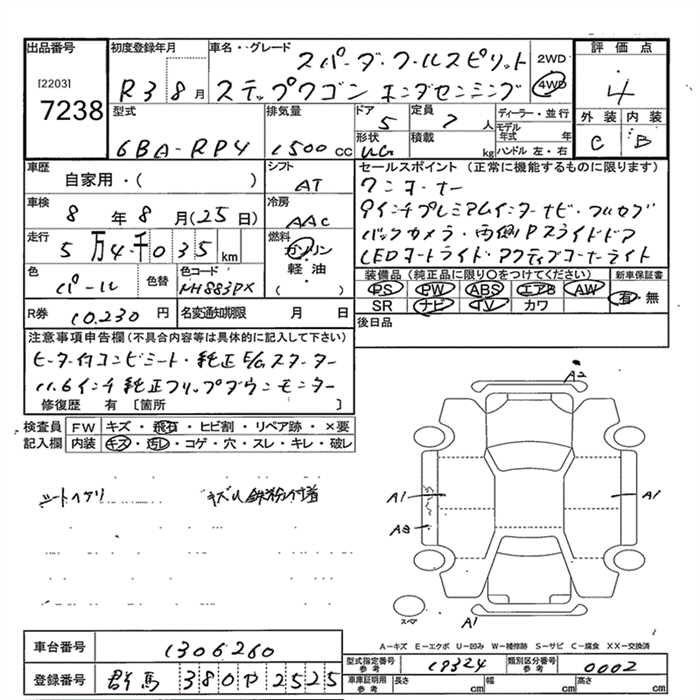 出品番号 初度登録年月 車名・グレード スパーダ・クールスピリット 2WD 評価点
[2203] 7238 R3 8月 ステップワゴン ホンダセンシング 4WD 4
型式 排気量 ドア 5 定員 7人 ディーラー・並行 外装 内装
6BA-RP4 1500cc 形状 積載 kg モデル年式 年 ハンドル 左・右 C B
車歴 シフト セールスポイント (正常に機能するものに限ります)
自家用・( ) AT ワンオーナー
車検 8年8月(25日) 冷房 AAC 9インチプレミアムインターナビ・フルセグ
走行 5万4千035km 燃料 ガソリン・軽・油 ( ) バックカメラ・両側Pスライドドア
LEDオートライト・アクティブコーナーライト
色 パール 色替 色コード NH883PX 装備品 (純正品に限り○をつけてください) 新車保証書
PS PW ABS エアB AW 有・無
SR ナビ TV カワ
R券 10.230円 名変通知期限 月 日 後日品
注意事項申告欄(不具合内容等は具体的に記入して下さい)
ヒーター付コンビシート・純正E/Gスターター
11.6インチ純正フリップダウンモニター
修復歴 有 [箇所 ]
検査員 FW キズ・飛石・ヒビ割・リペア跡・×要
記入欄 内装 キズ・汚れ・コゲ・穴・スレ・キレ・破レ
A2
シートヘタリ キズ小 鉄粉付着
A1 A1
A3
スペア A1
A-キズ E-エクボ U-凹み W-補修跡 S-サビ C-腐食 XX-交換済
車台番号 1306260
型式指定番号 参考 19324 類別区分番号 参考 0002
登録番号 群馬 380や2525 車庫証明用 参考 長さ cm 幅 cm 高さ cm